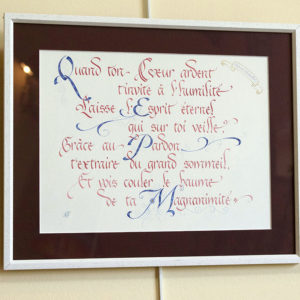 Quand ton Cœur ardent
t'invite à l'humilité
Laisse l'Esprit éternel
qui sur toi veille,
Grâce au Pardon
t'extraire du grand sommeil.
Et vois couler le baume
de ta Magnanimité.